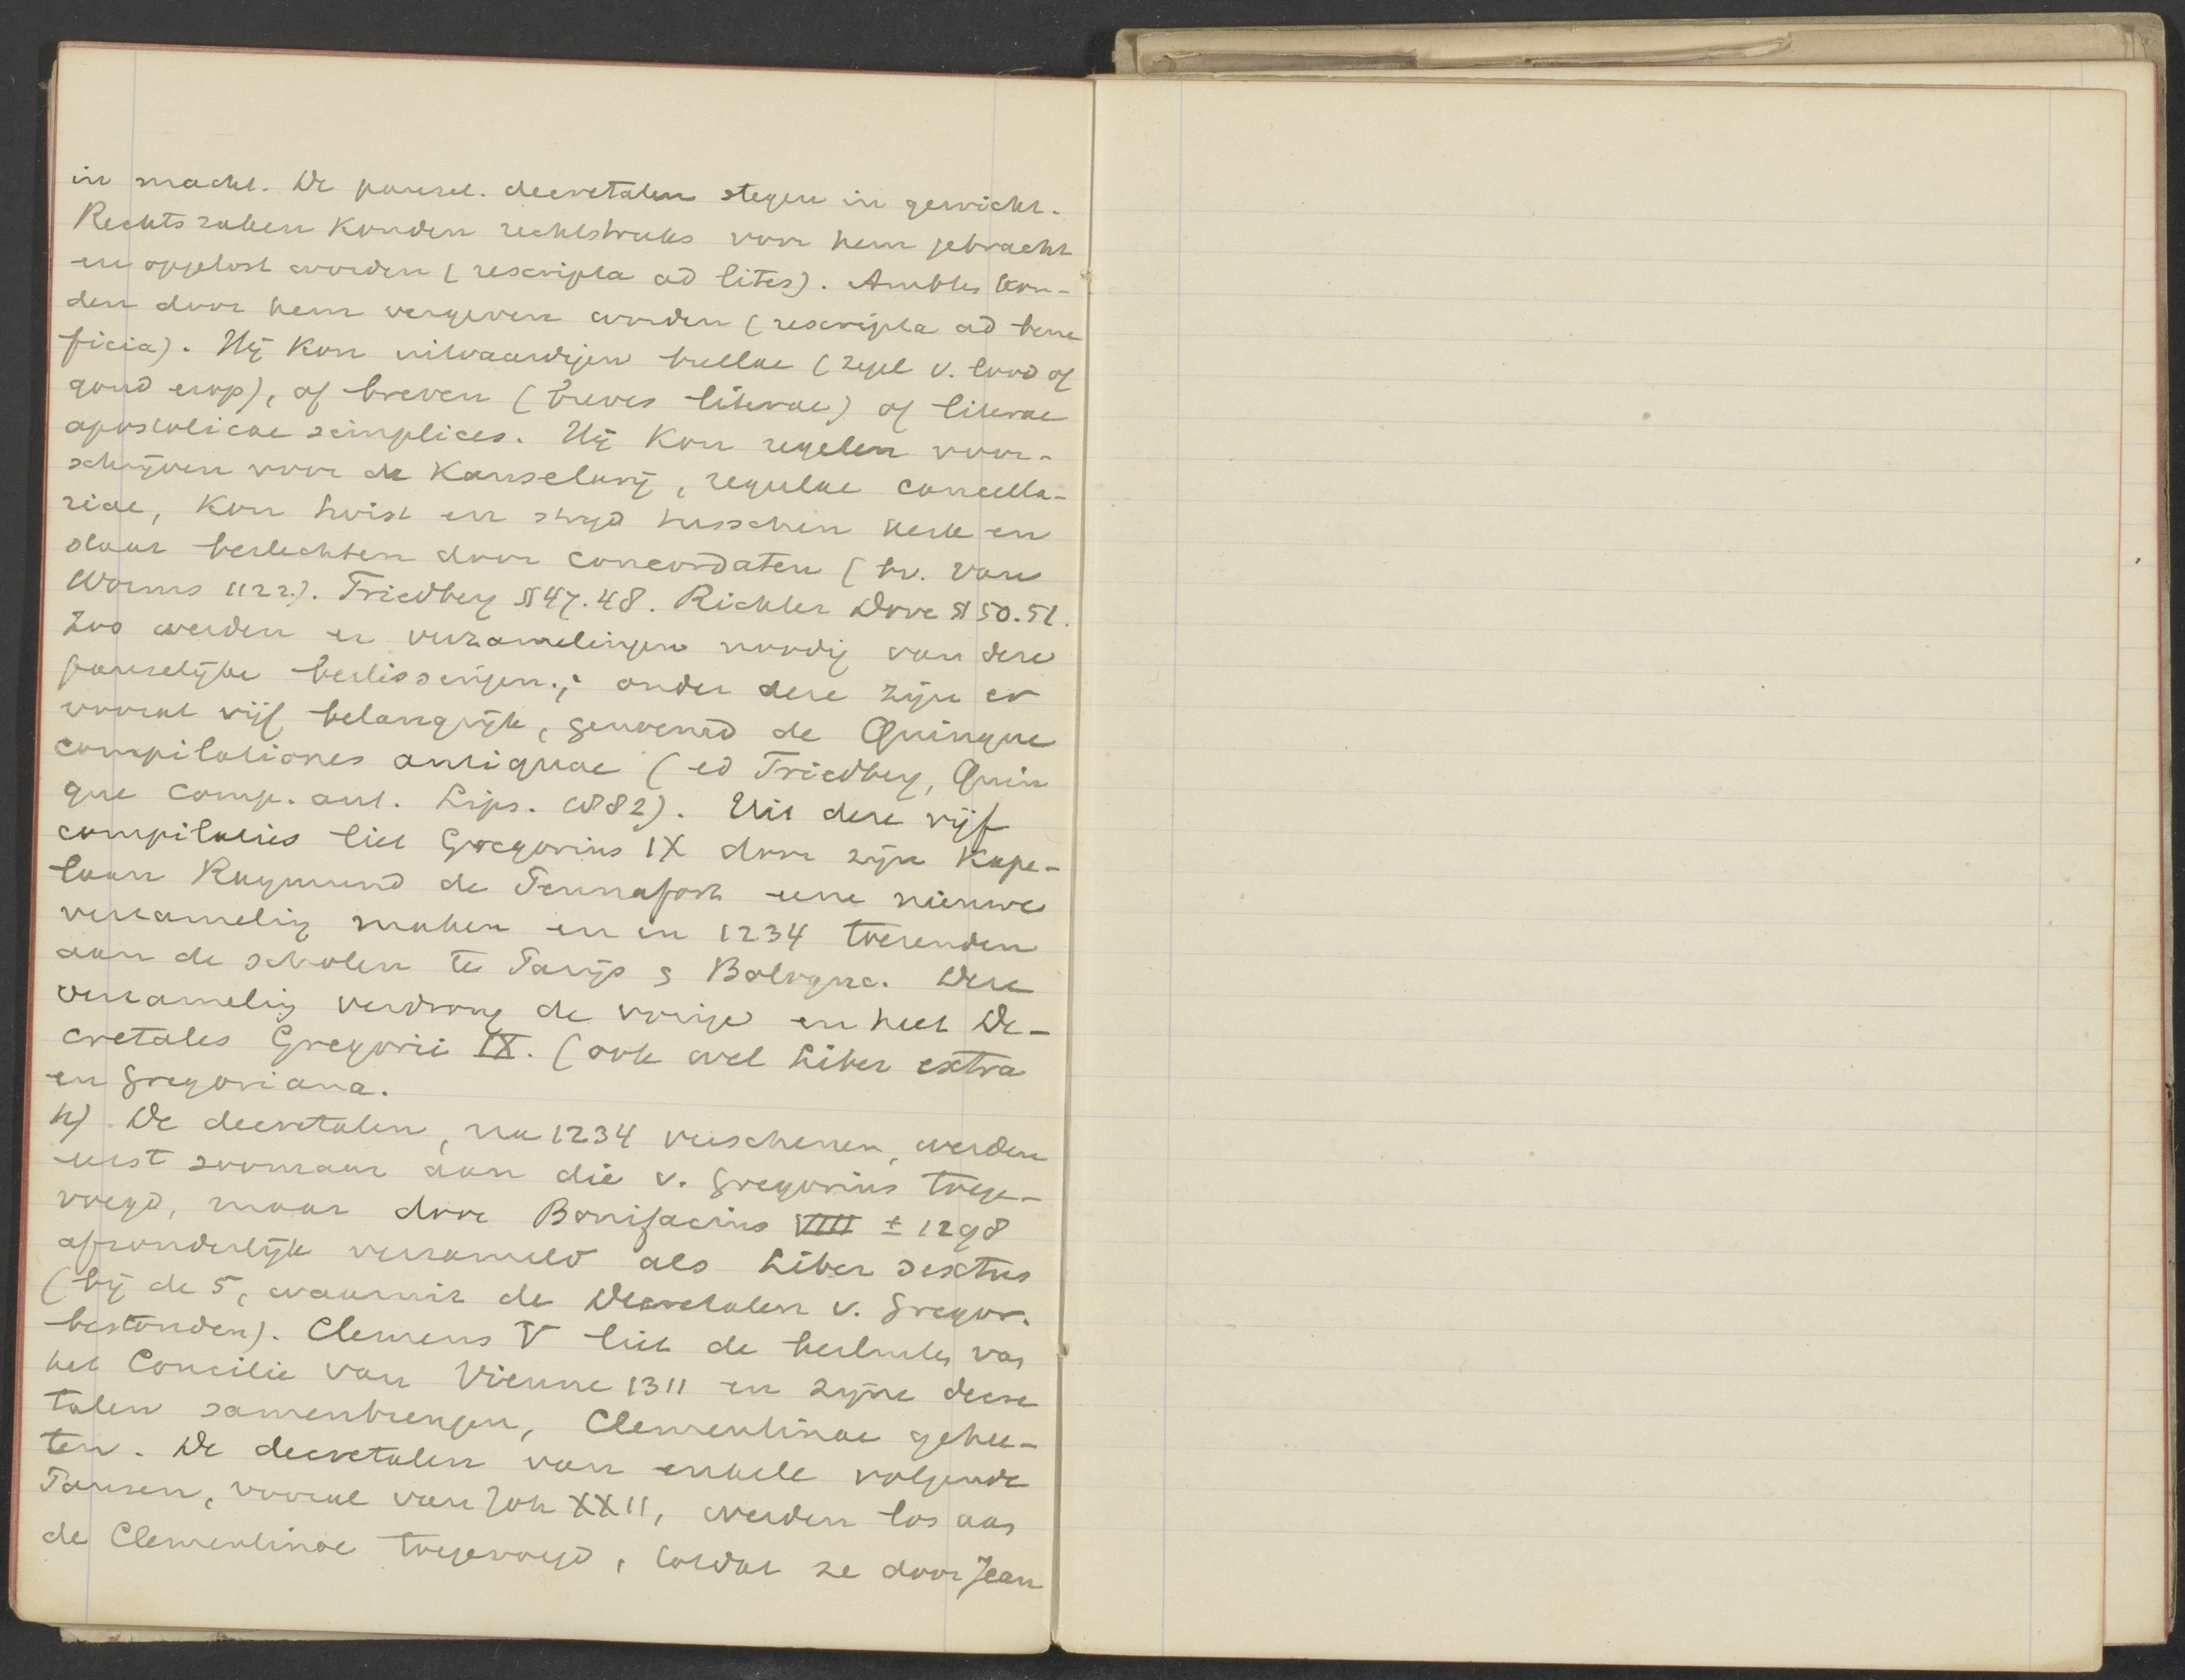 in macht. De pausel. decretalen stegen in gewicht.
Rechtszaken konden rechtstreeks voor hem gebracht
en opgelost worden (rescripta ad lites). Ambten kon-
den door hem vergeven worden (rescripta ad bene
ficia). Hij kon uitvaardigen bullae (zegel v. lood of
goud erop), of breven (breves literae) of literae
apostolicae simplices. Hij kon regelen voor-
schrijven voor de Kanselarij, regulae cancella-
riae, kon twist en strijd tusschen kerk en
staat beslechten door concordaten (bv. van
Worms 1122.). Friedberg §§ 47.48. Richter Dove §§ 50.51.
Zoo werden er verzamelingen noodig van deze
pauselijke beslissingen.; onder deze zijn er
vooral vijf belangrijk, genoemd de Quinque
compilationes antiquae (ed Friedberg, Quin
que comp. ant. Lips. 1882). Uit deze vijf
compilaties liet Gregorius IX door zijn Kape-
laan Raymund de Pennafort eene nieuwe
verzameling maken en in 1234 toezenden
aan de scholen te Parijs & Bologna. Deze
verzameling verdrong de vorige en heet De-
cretales Gregorii IX. (ook wel Liber extra
en Gregoriana.
h) De decretalen, na 1234 verschenen, werden
eerst zoomaar aan die v. Gregorius toege-
voegd, maar door Bonifacius VIII ± 1298
afzonderlijk verzameld als Liber sextus
(bij de 5, waaruit de Decretalen v. Gregor.
bestonden). Clemens V liet de besluiten van
het Concilie van Vienne 1311 en zijne decre
talen samenbrengen, Clementinae gehee-
ten. De decretalen van enkele volgende
Pausen, vooral van Joh XXII, werden los aan
de Clementinae toegevoegd, totdat ze door Jean